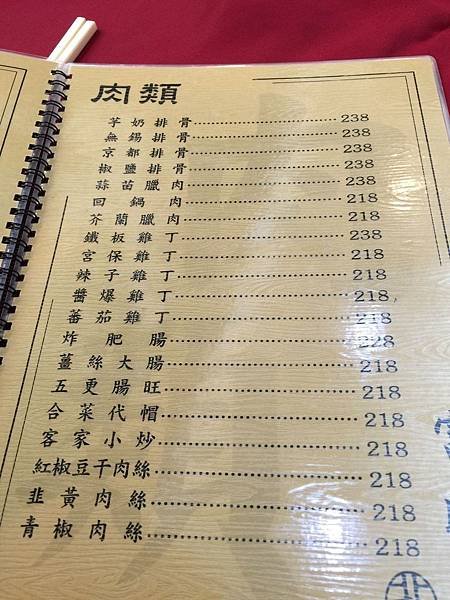 肉類
芋奶排骨 238
無錫排骨 238
京都排骨 238
椒鹽排骨 238
蒜苗臘肉 238
回鍋肉 218
芥蘭臘肉 218
鐵板雞丁 238
宮保雞丁 218
辣子雞丁 218
醬爆雞丁 218
蕃茄雞丁 218
炸肥腸 228
薑絲大腸 218
五更腸旺 218
合菜代帽 218
客家小炒 218
紅椒豆干肉絲 218
韭黃肉絲 218
青椒肉絲 218